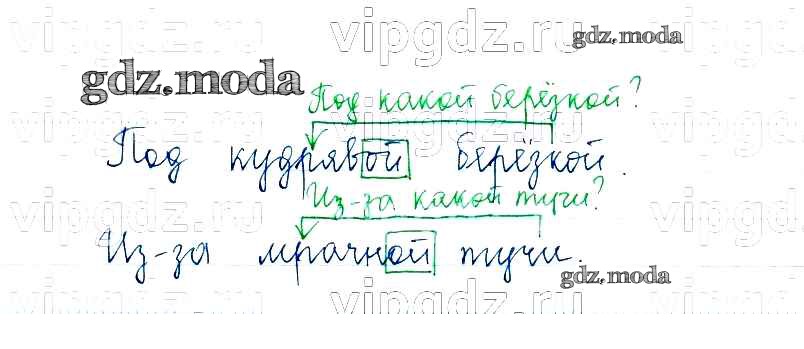 vipgdz.ru vipgdz.ru vipgdz.ru
gdz.moda
gdz.moda
Под какой берёзкой?
Под кудрявой берёзкой.
Из-за какой тучи?
vipgdz.ru vipgdz.ru
Из-за мрачной тучи.
gdz.moda
vipgdz.ru vipgdz.ru